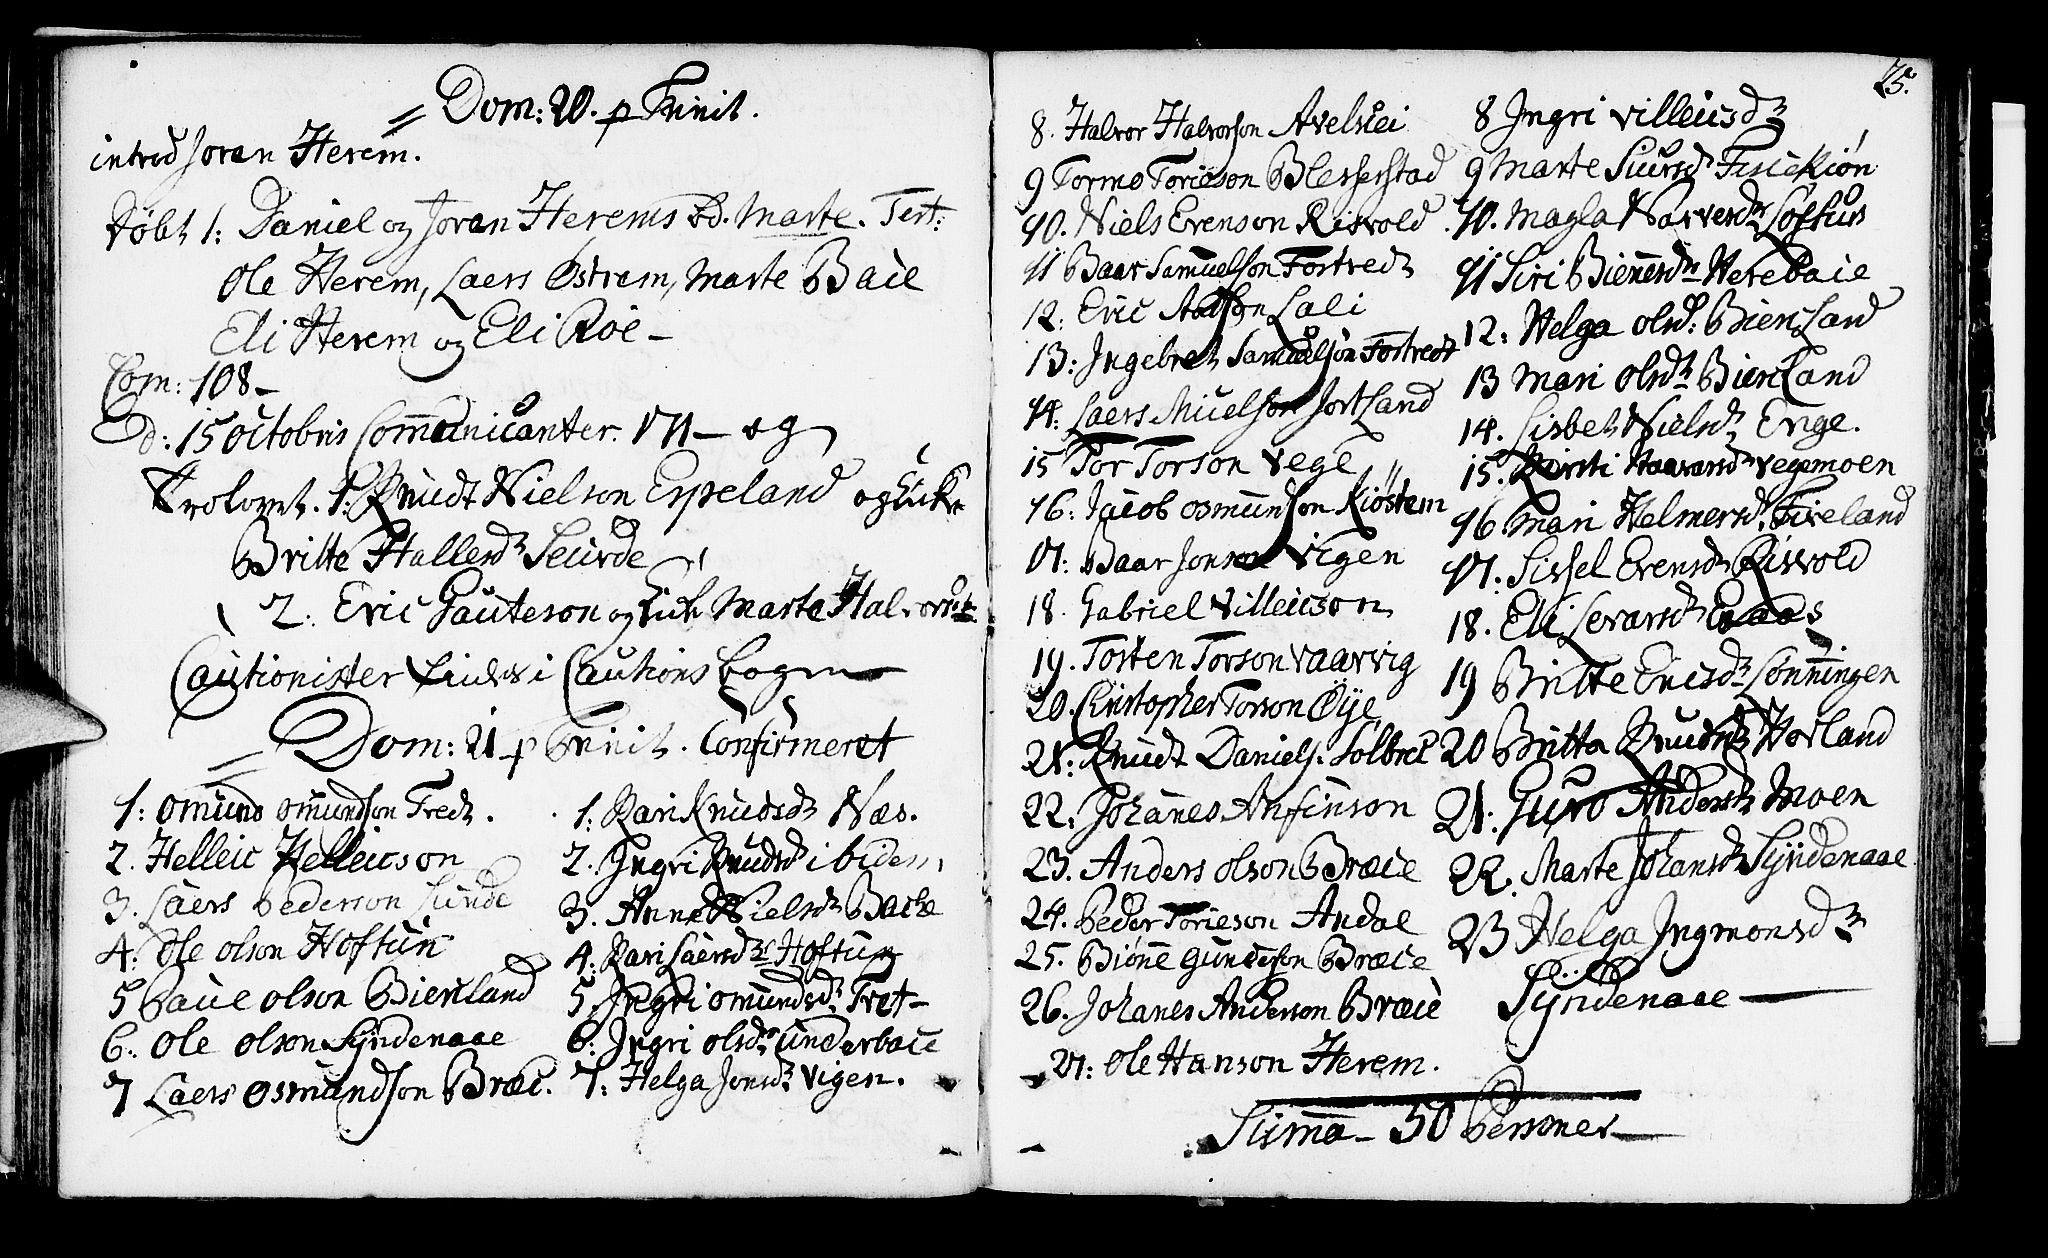 = Dom: 20. p Trinit.
introd Joran Herem.
døbt 1: Daniel og Joran Herems bd. Marte. Test:
Ole Herem, Laers Østrem, Marte Baċe
Eli Herem og Eli Roe -
Com: 108 -
D: 15 octobris Communicanter. 171 - og
Trolovet. 1. Knudt Nielson Espeland og Eick
Britte Hallesdr Seurde
2. Eric Gauteson og Eick Marte Halvorsdr
Cautionister findes i Cautions bogen
= Dom: 21 p Trinit. Confirmeret
1: Omund Omundson Tredt.
2. Helleic Helleicson
3. Laers Pederson Lunde
4: Ole Olson Hoftun
5 Paue Olson Bierkland
6: Ole Olson Syndenaae
7 Laers Osmundson Bræc.
1: Kari Knudsdr Næs.
2. Ingri Knudsdr ibidem
3. Anne Nielsdr Bache
4: Kari Laersdr Hoftun
5 Ingri Omundsdr Tret -
6: Ingri Olsdr Underbace
7: Helga Jonsdr Vigen.
75.
8. Halvor Halvorson Avelsiei
9 Tormo Torieson Blesserstad
10. Niels Evenson Risvold
11 Baar Samuelson Fostvedt
12: Eric Lali
13: Ingebret Samuelson Fostvedt
14. Laers Miuelson Jortland
15 Tor Torson Vege
16: Jacob Osmundson Kiøstem
17: Baar Jonson Vigen
18. Gabriel Villeicson
19. Tosten Torson Vaarvig
20. Christopher Torson Øye
21: Knudt Daniels. Solbrec
22. Johanes Anfinson
23. Anders Olson Bræcie
24. Peder Torieson Andal
25. Biøne Gunderson Bræcie
26. Johanes Anderson Bræcie
27: Ole Hanson Herem.
8 Ingri Villeicsdr
9 Marte Siursdr Fisickiøn
10. Magla Narvesdr Loftus
11 Siri Biønesdr Herebacie
12: Helga Olsdr: Bierkland
13 Mari Olsdr Bierkland
14. Lisbet Nielsdr Enge.
15. Kirsti Haavarsdr Vegemoen
16. Mari Helmersdr Fixeland
17. Sissel Evensdr Risvold
18. Eli Sevarsdr Eaaes
19 Britte Ericsdr Sønningen
20 Britta Knudsdr Horland
21. Guro Andersdr Moen
22. Marte Johansdr Syndenaae
23 Helga Ingmonsdr
Syndenaae
Suma - 50 Personer